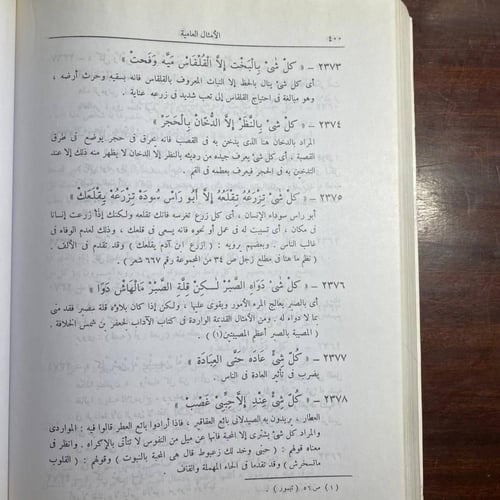 ٤٠٠ الأمثال العامية
٢٣٧٣ – « كُلّ شَىْ بِالْبَخْت إِلَّا الْقُلْقَاسْ مَيَّه وْفَحْتْ »
أى كل شىء ينال بالحظ إلا النبات المعروف بالقلقاس فانه بسقيه وحرث أرضه ،
وهو مبالغة فى احتياج القلقاس إلى تعب شديد فى زرعه عناية .
٢٣٧٤ – « كُلّ شَىْ بِالنَّظَرْ إِلَّا الدُّخَّانْ بِالْحَجَرْ »
المراد بالدخان هنا الذى يدخن به فى القصب فانه يحرق فى حجر يوضع فى طرق
القصبة ، أى كل شىء يعرف جيده من رديئه بالنظر إلا الدخان لا يظهر منه ذلك إلا عند
التدخين به فى الحجر فيعرف بطعمه فى الفم .
٢٣٧٥ – « كُلّ شَىْ تِزْرَعُهْ تِقْلَعُهْ إِلَّا أَبُو رَاسْ سُودَه تِزْرَعُهْ يِقْلَعَكْ »
أبو راس سوداه الإنسان ، أى كل زرع تغرسه فانك تقلعه ولكنك إذا زرعت إنسانا
فى مكان ، أى تسببت له فى عمل أو نحوه فانه يسعى فى قلعك ، وذلك لعدم الوفاء فى
غالب الناس . وبعضهم يرويه : ( ازرع ابن آدم يقلعك ) وقد تقدم فى الألف .
( نظم ما هنا فى مطلع زجل ص ٣٤ من المجموعة رقم ٦٦٧ شعر ) .
٢٣٧٦ – « كُلّ شَىْ دَوَاهِ الصَّبْرْ لٰكِنْ قِلَّةِ الصَّبْرْ مَالْهَاشْ دَوَا »
أى بالصبر يعالج المرء الأمور ويقوى عليها ، ولكن إذا كان بلاؤه قلة صبر فقد منى
بما لا دواء له . ومن الأمثال القديمة الواردة فى كتاب الآداب لجعفر بن شمس الخلافة .
( المصيبة بالصبر أعظم المصيبتين(١) ) .
٢٣٧٧ – « كُلّ شَىْ عَادَه حَتَّى الْعِبَادَة »
يضرب فى تأثير العادة فى الناس .
٢٣٧٨ – « كُلّ شَىْ عَنْدِ الْعَطَّارْ إِلَّا حِبِّنِى غَصْبْ »
العطار ، يريدون به الصيدلانى بائع العقاقير ، فاذا أرادوا بائع العطر قالوا فيه : المواردى
والمراد كل شىء يشترى إلا المحبة فانها عن ميل من النفوس لا تتأتى بالإكراه . وانظر فى
معناه قولهم : ( حبنى وخد لك زعبوط قال هى المحبة بالنبوت ) وقولهم : ( القلوب
ماتسخرش ) وقد تقدما فى الحاء المهملة والقاف .
( ١ ) ص٥٦ ( تيمور ) .